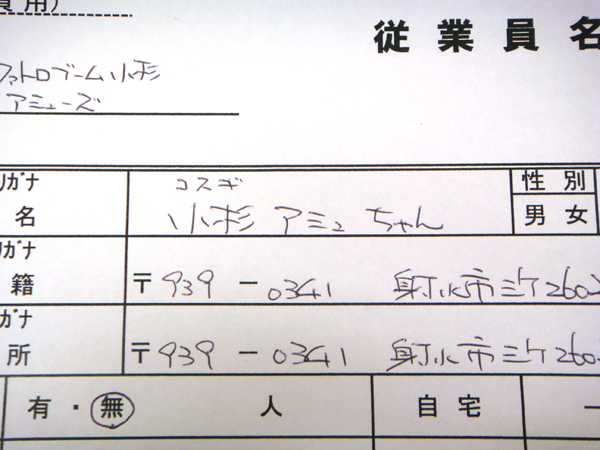 費用)
従業員名
ファトロブーム小杉
アミューズ
リガナ コスギ 性別
名 小杉 アミュ ちゃん 男 女
リガナ
籍 〒939-0341 射水市三ケ260
ガナ
所 〒939-0341 射水市三ケ260
有・無 人 自宅